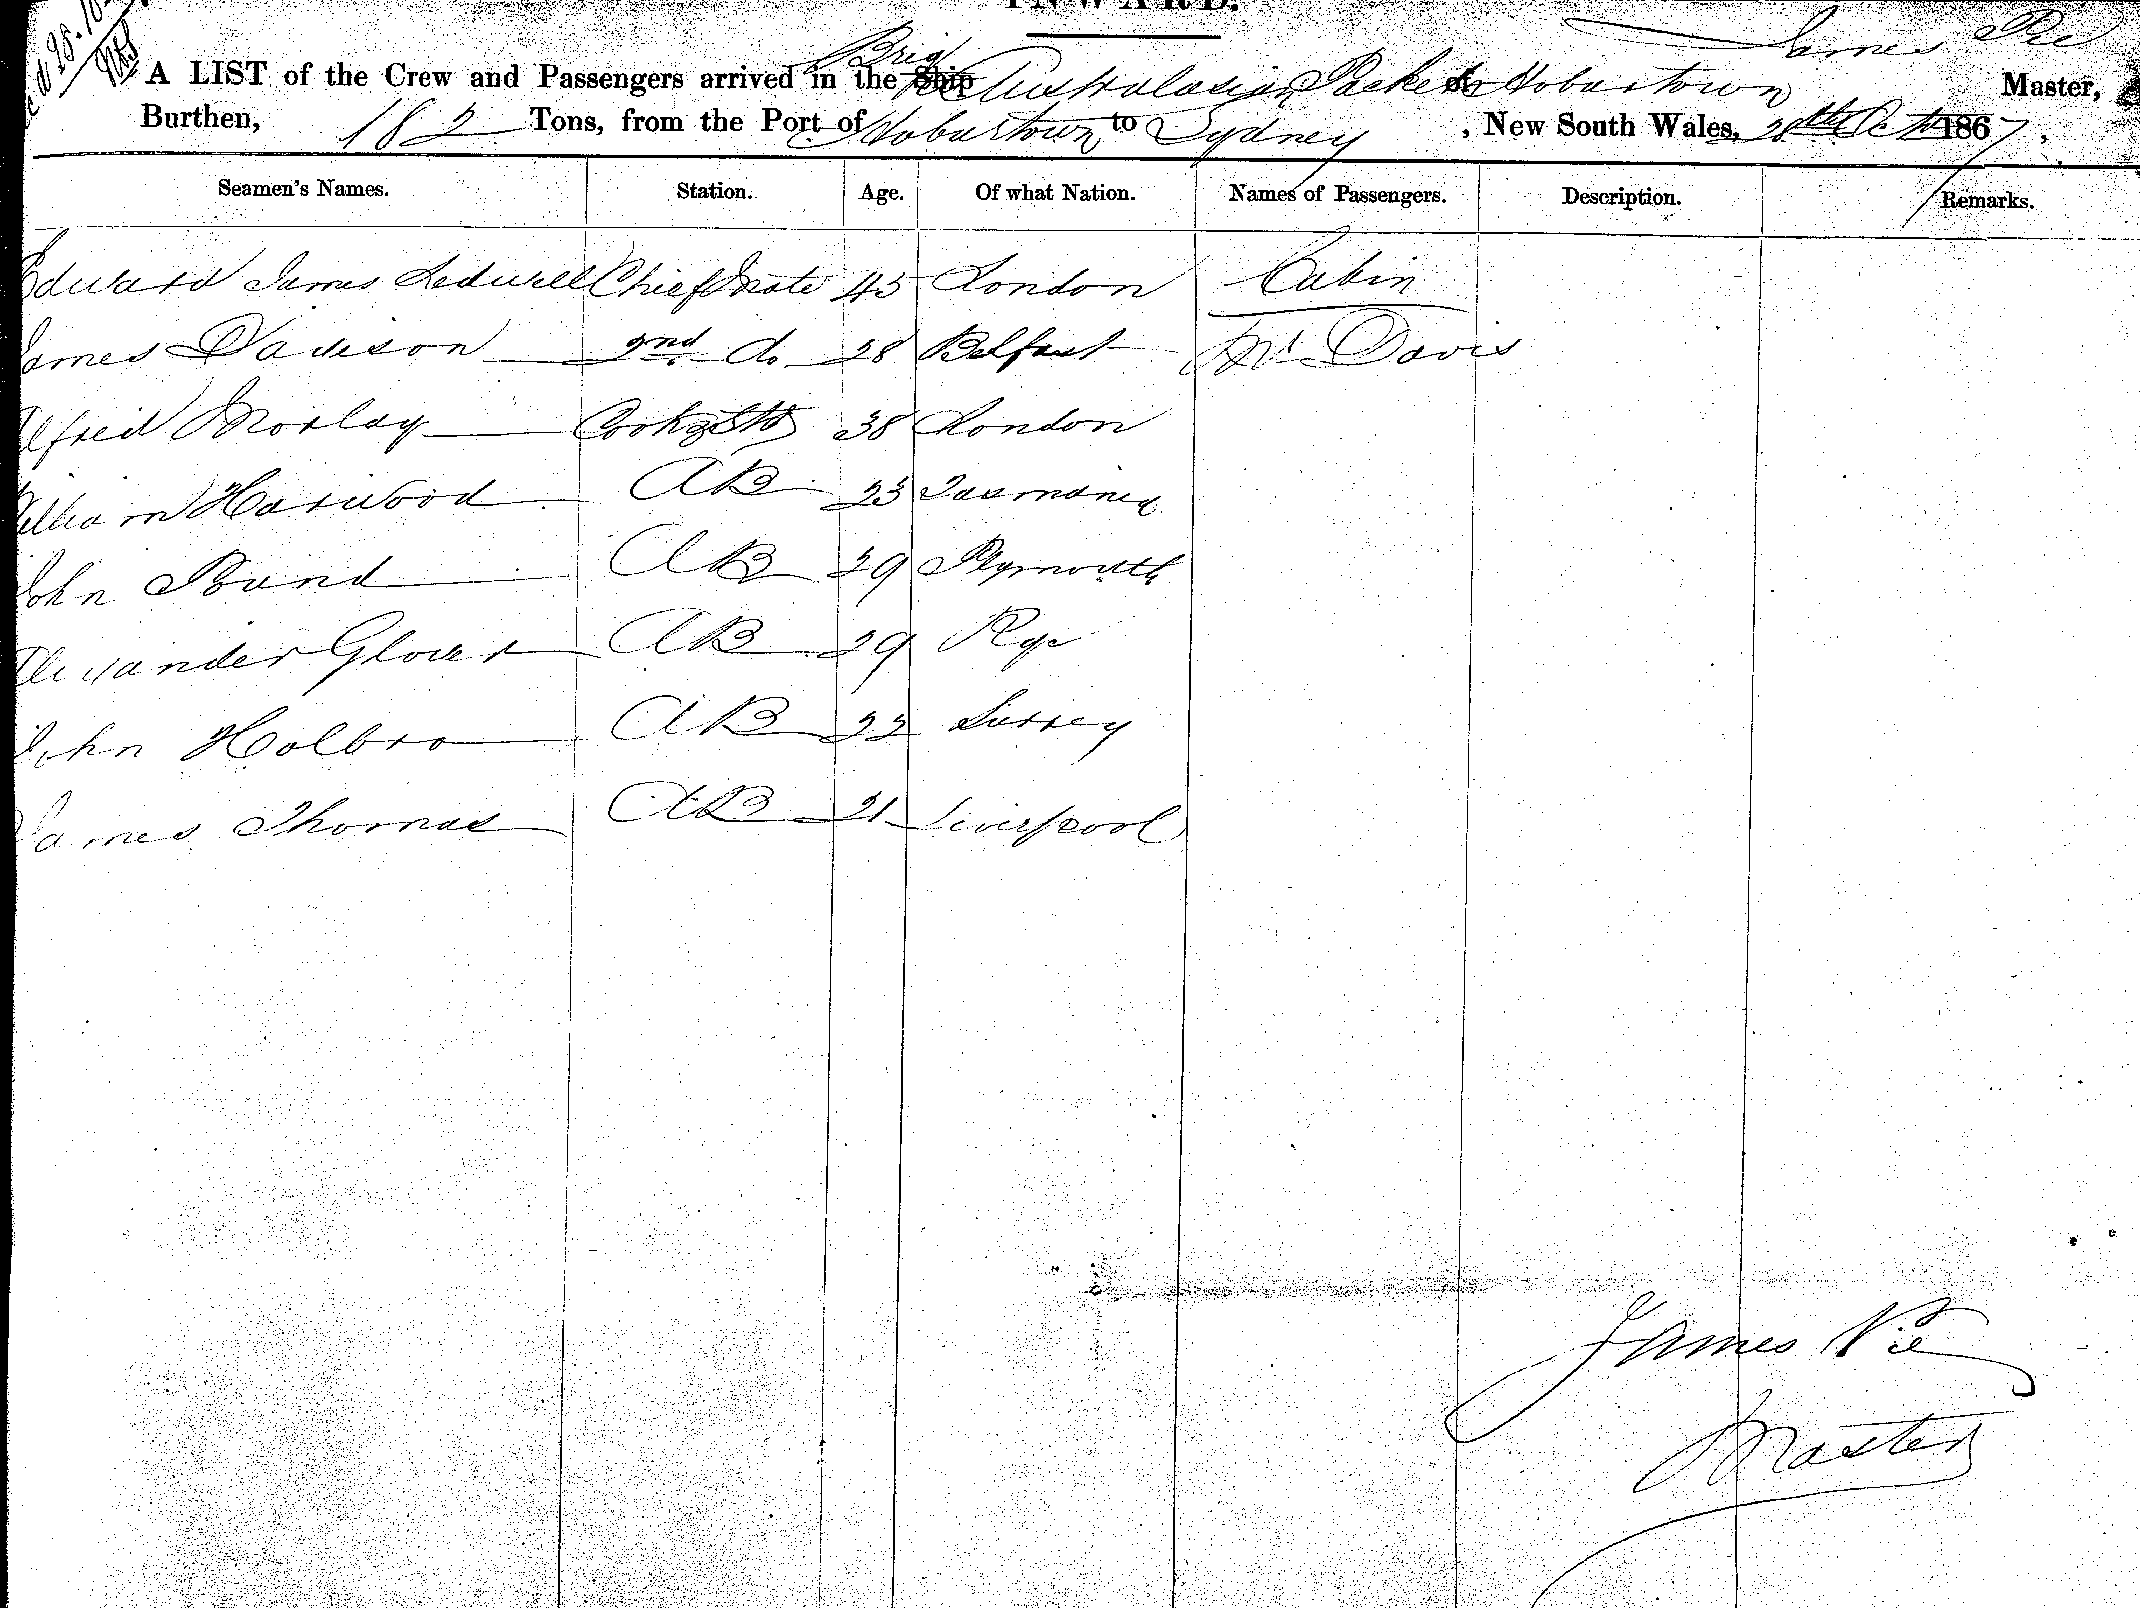 INWARD.
James Pie
A LIST of the Crew and Passengers arrived in the Ship Brig Australasian Packet of Hobartown Master,
Burthen, 182 Tons, from the Port of Hobartown to Sydney, New South Wales, 28th Oct 1867.
Seamen's Names. Station. Age. Of what Nation. Names of Passengers. Description. Remarks.
Edward James Ledwell Chief Mate 45 London Cabin
James Davison 2nd do 28 Belfast Mr Davis
Alfred Morlay Cook & Std 38 London
William Harwood AB 23 Tasmania
John Bund AB 29 Plymouth
Alexander Glover AB 29 Rye
John Holbro AB 22 Surrey
James Thomas AB 21 Liverpool
James Pie
Master